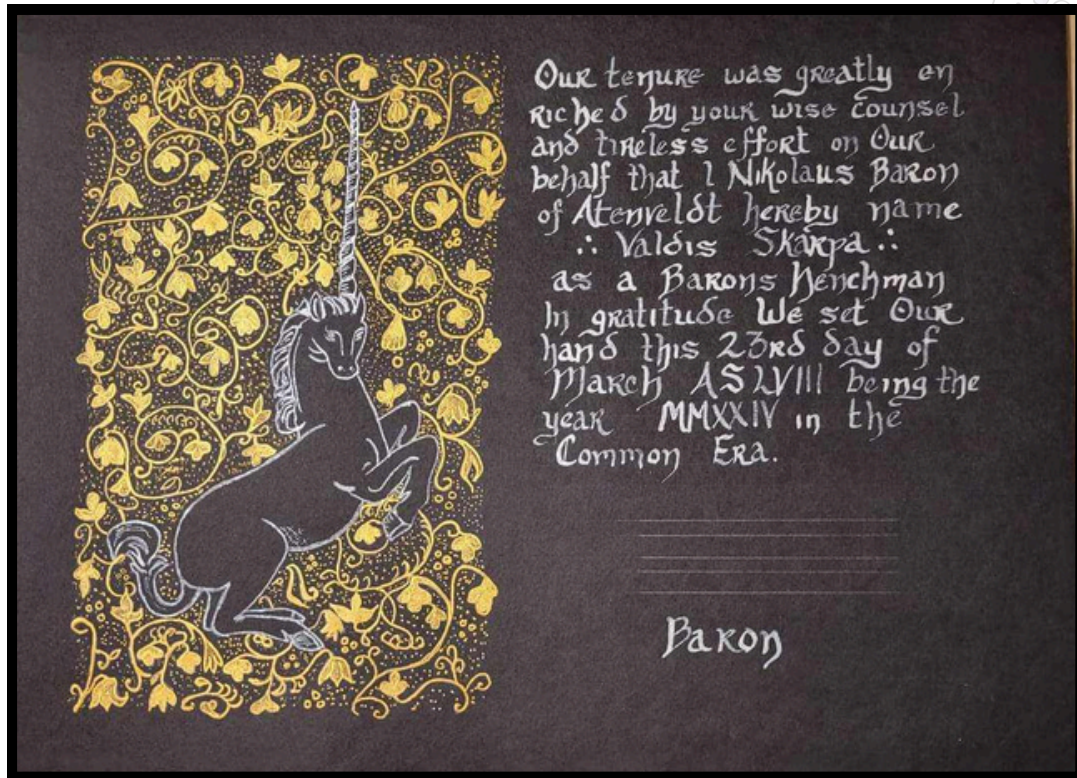 Our tenure was greatly en
riched by your wise counsel
and tireless effort on Our
behalf that I Nikolaus Baron
of Atenveldt hereby name
∴ Valdis Skarpa ∴
as a Barons Henchman
In gratitude We set Our
hand this 23rd day of
March AS LVIII being the
year MMXXIV in the
Common Era.
Baron